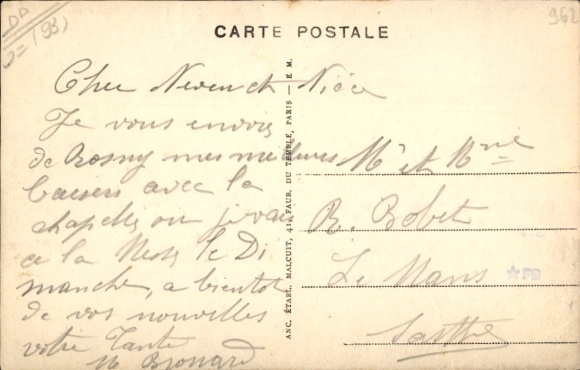 CARTE POSTALE
Cher Neveu et Nièce
Je vous envoie
de Rosny mes meilleurs
baisers avec la
chapelle ou je vai
a la Messe le Di
manche, a bientot
de vos nouvelles
votre Tante
M
Mr et Mme
R. Bobet
Le Mans
Sarthe
ANC. ÉTABL. MALCUIT, 41, FAUB. DU TEMPLE, PARIS — E. M.
DD
(93)
962